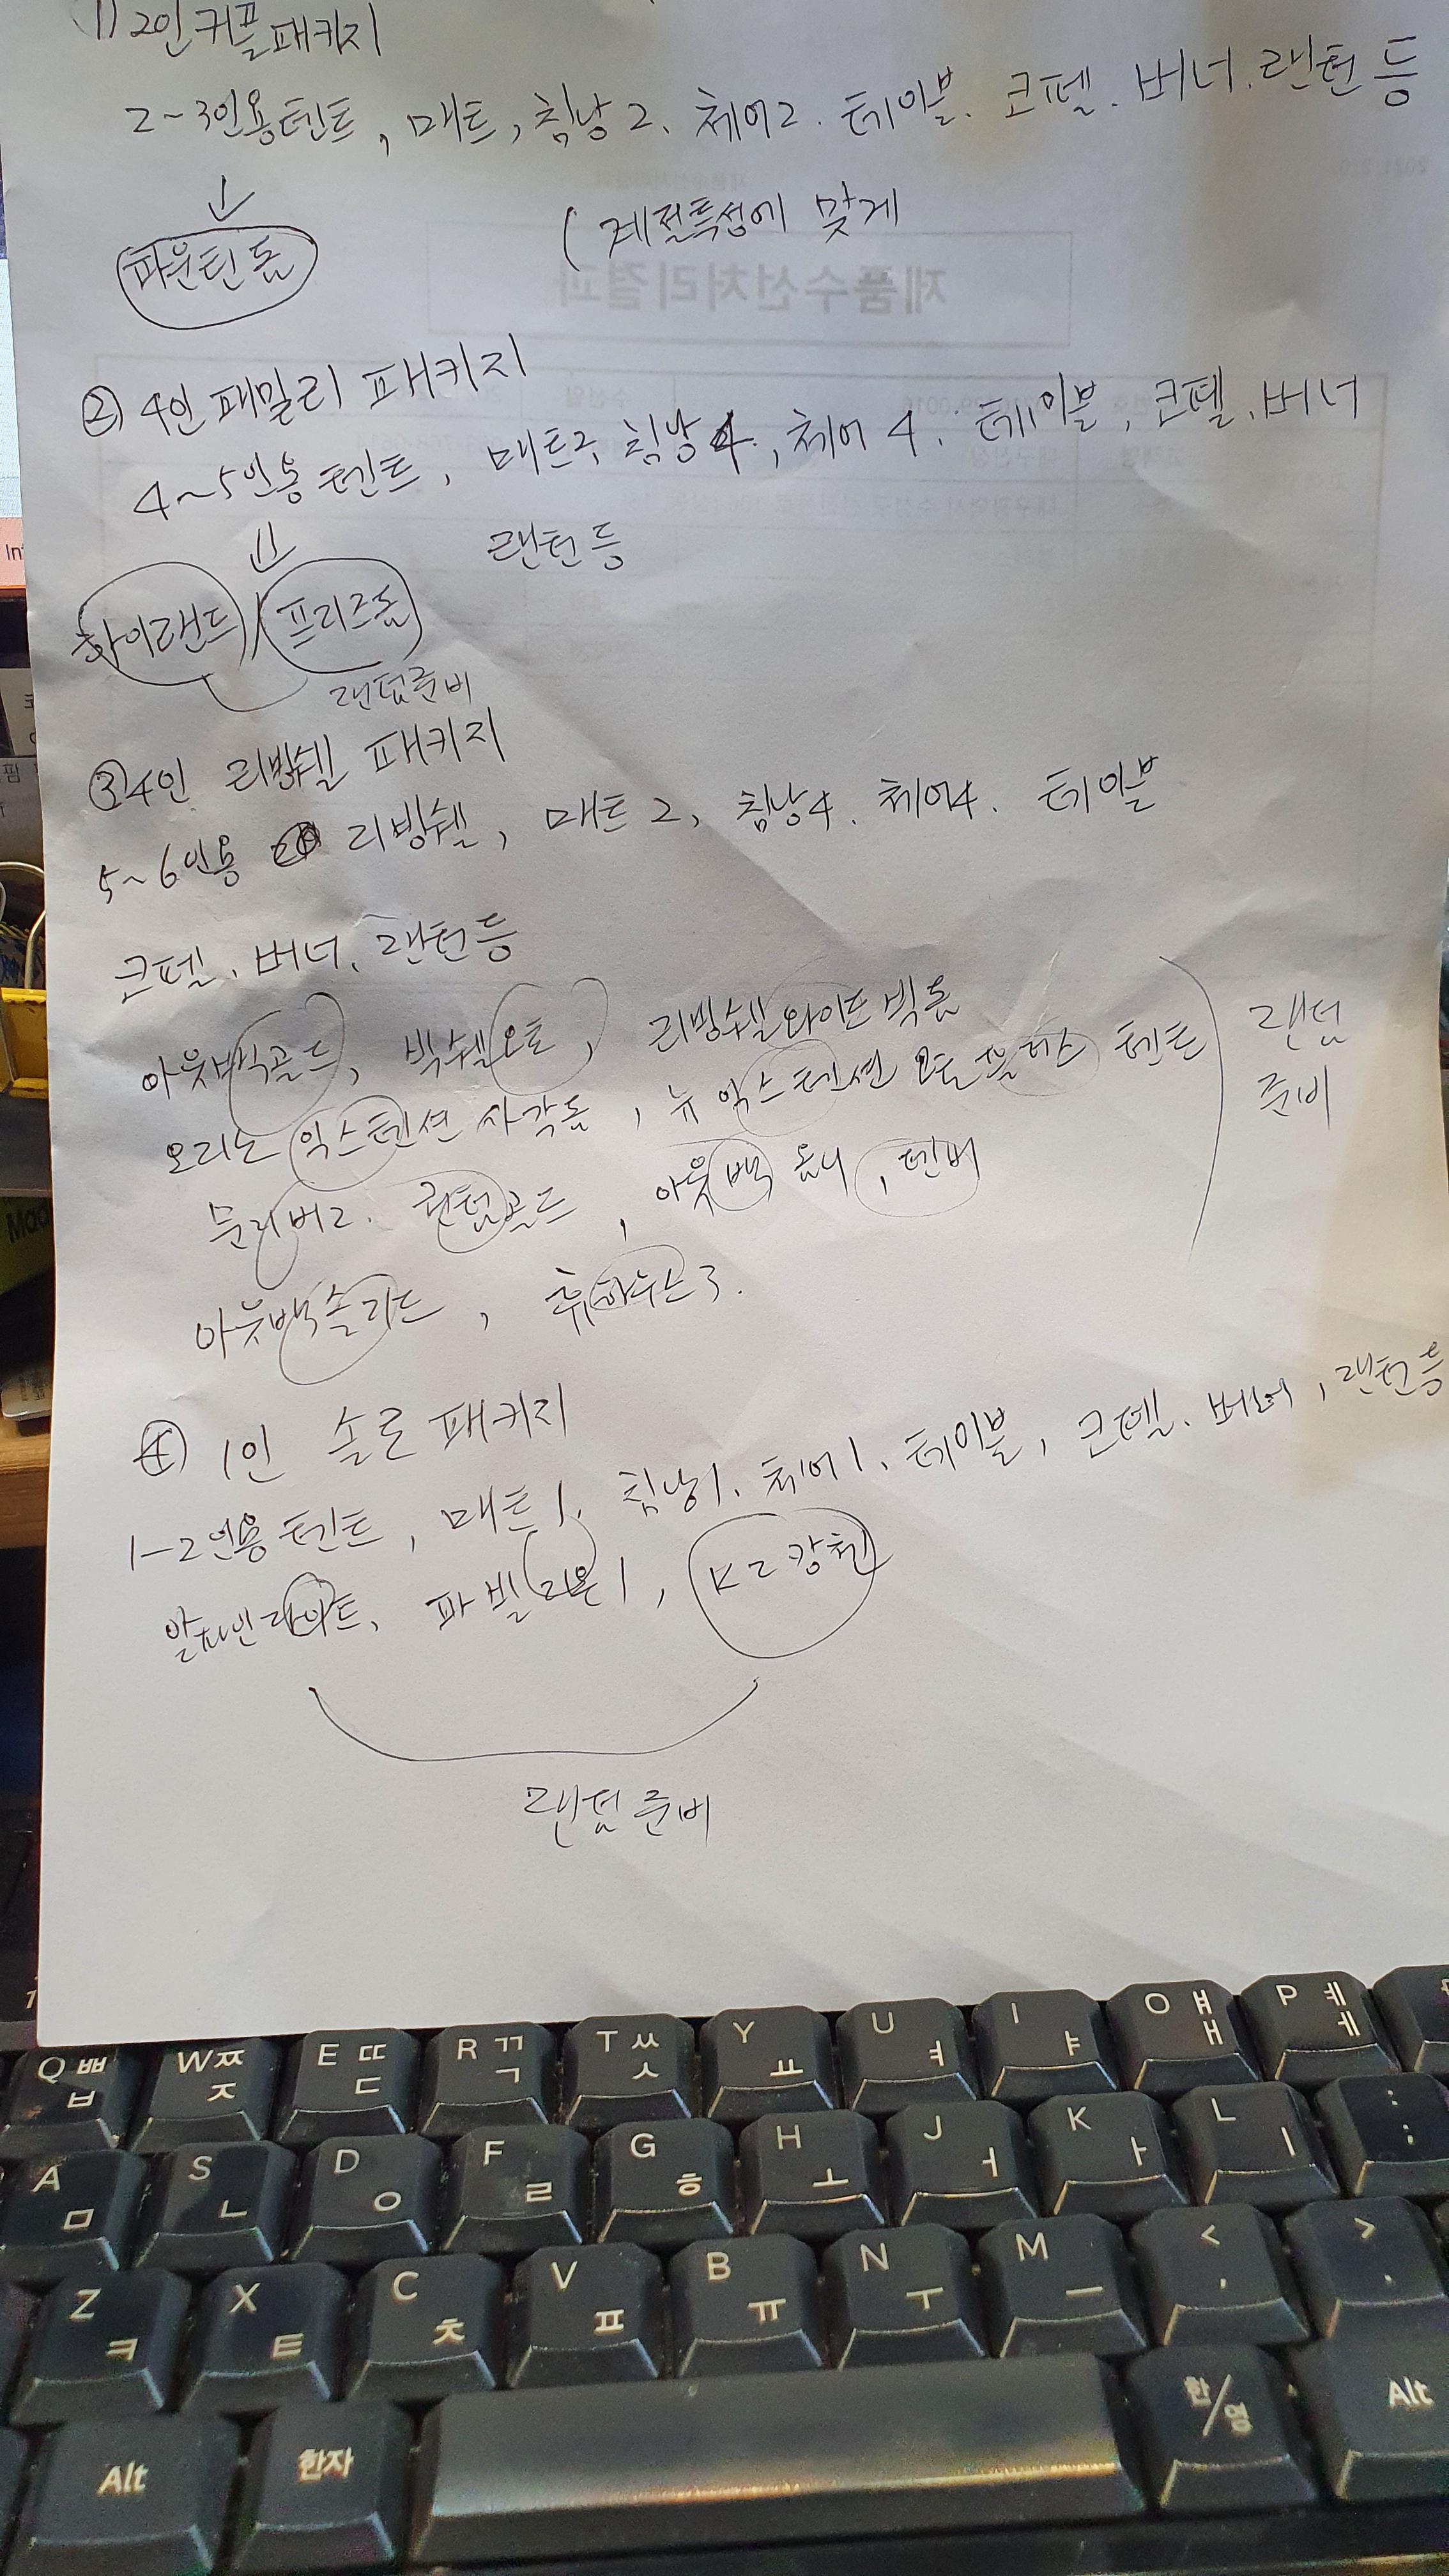 (1) 2인커플패키지
2~3인용텐트, 매트, 침낭2. 체어2. 테이블. 코펠. 버너. 랜턴 등
(계절특성에 맞게
파운틴돔
② 4인패밀리 패키지
4~5인용텐트, 매트2, 침낭4, 체어4. 테이블, 코펠. 버너
랜턴등
하이랜드 / 프리즈돔
랜덤준비
③ 4인 리빙쉘 패키지
5~6인용 리빙쉘, 매트2, 침낭4. 체어4. 테이블
코펠. 버너. 랜턴등
아웃백골드, 빅쉘오토, 리빙쉘와이드빅돔
오리논 익스텐션 사각돔, 뉴 익스텐션 오토플러스 텐트
문리버2. 퀀텀골드, 아웃백 옴니, 덴버
아웃백솔리드, 휘하우스3.
랜덤
준비
④ 1인 솔로 패키지
1-2인용텐트, 매트1, 침낭1. 체어1. 테이블, 코펠. 버너, 랜턴등
알파인라이트, 파빌리온1, K2캉첸
랜덤준비
제품수선처리결과
In
Mac
Q ㅃ ㅂ
W ㅉ ㅈ
E ㄸ ㄷ
R ㄲ ㄱ
T ㅆ ㅅ
Y ㅛ
U ㅕ
I ㅑ
O ㅒ ㅐ
P ㅖ ㅔ
A ㅁ
S ㄴ
D ㅇ
F ㄹ
G ㅎ
H ㅗ
J ㅓ
K ㅏ
L ㅣ
: ;
Z ㅋ
X ㅌ
C ㅊ
V ㅍ
B ㅠ
N ㅜ
M ㅡ
< ,
> .
Alt
한자
한/영
Alt